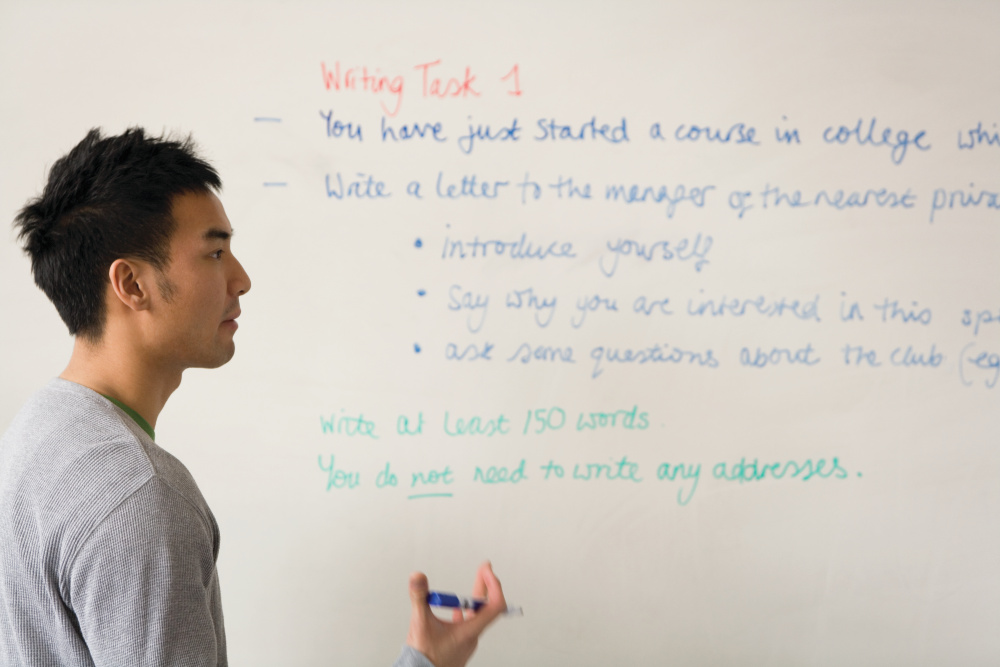 Writing Task 1
— You have just started a course in college whi
— Write a letter to the manager of the nearest priva
• introduce yourself
• Say why you are interested in this sp
• ask some questions about the club (eg
Write at least 150 words.
You do not need to write any addresses.